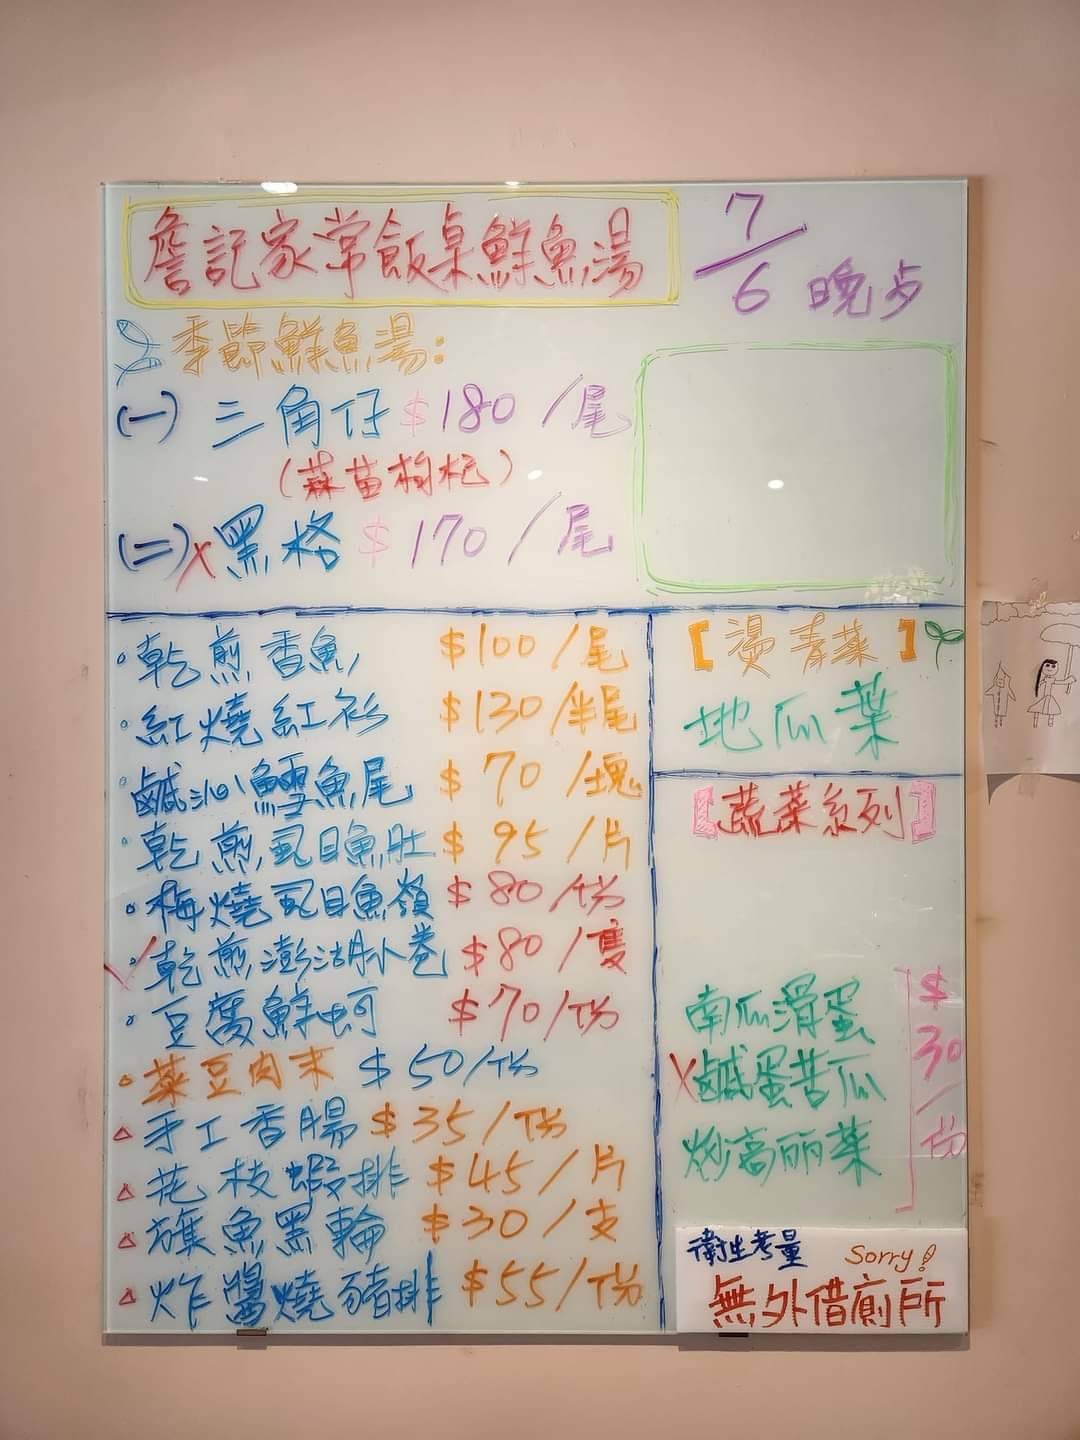 詹記家常飯桌鮮魚湯
7/6 晚步
季節鮮魚湯:
(一) 三角仔 $180/尾
(蒜苗枸杞)
(二)x黑格 $170/尾
乾煎香魚 $100/尾
紅燒紅衫 $130/半尾
鹹油鱈魚尾 $70/塊
乾煎虱目魚肚 $95/片
梅燒虱目魚嶺 $80/份
乾煎澎湖小卷 $80/隻
豆腐鮮蚵 $70/份
菜豆肉末 $50/份
手工香腸 $35/份
花枝蝦排 $45/片
旗魚黑輪 $30/支
炸醬燒豬排 $55/份
【燙青菜】
地瓜葉
【蔬菜系列】
南瓜滑蛋
x鹹蛋苦瓜
炒高丽菜
$30/份
衛生考量 Sorry!
無外借廁所